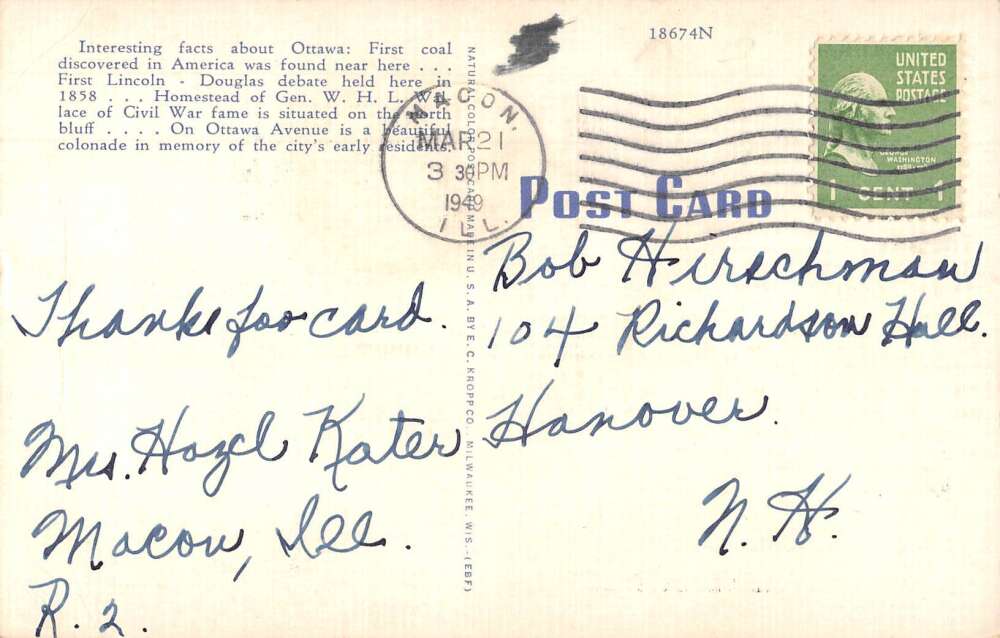 Interesting facts about Ottawa: First coal
discovered in America was found near here . . .
First Lincoln - Douglas debate held here in
1858 . . . Homestead of Gen. W. H. L. Wal
lace of Civil War fame is situated on the north
bluff . . . . On Ottawa Avenue is a beautiful
colonade in memory of the city's early residents.
NATURAL COLOR POST CARD MADE IN U. S. A. BY E. C. KROPP CO., MILWAUKEE, WIS.-(EBF)
18674N
MACON,
MAR 21
3 30 PM
1949
ILL.
UNITED
STATES
POSTAGE
GEORGE
WASHINGTON
1 CENT 1
POST CARD
Thanks for card.
Mrs. Hazel Kater
Macon, Ill.
R. 2.
Bob Hirschman
104 Richardson Hall.
Hanover.
N. H.